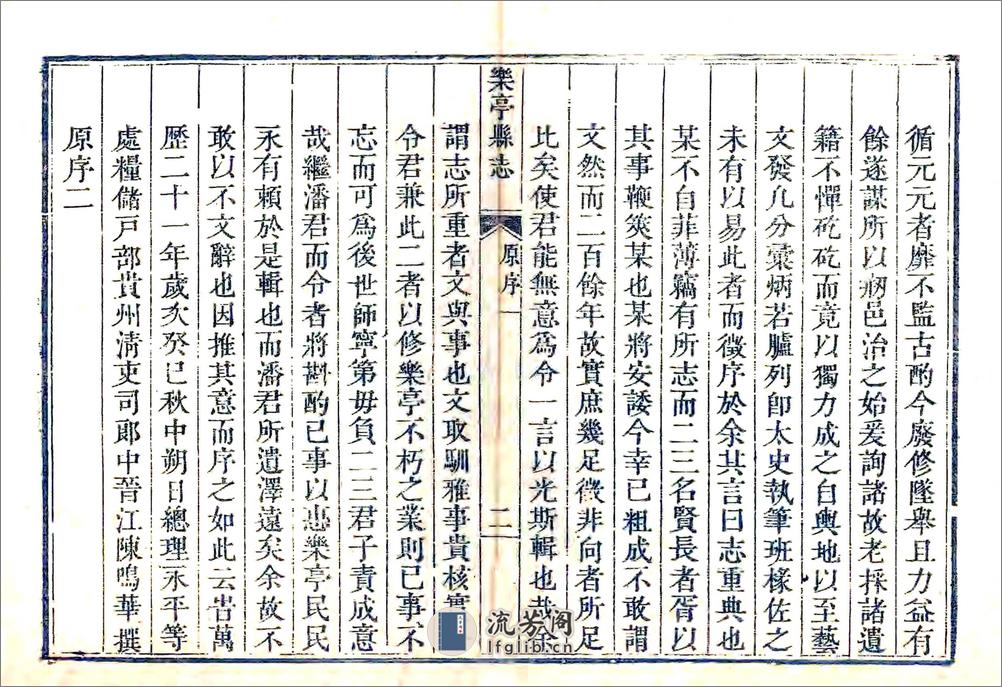 循元元者靡不監古酌今廢修墜舉且力益有
餘遂謀所以𤺊邑治之始爰詢諸故老採諸遺
籍不憚矻矻而竟以獨力成之自輿地以至藝
文發凡分彙炳若臚列卽太史執筆班椽佐之
未有以易此者而徵序於余其言曰志重典也
某不自菲薄竊有所志而二三名賢長者胥以
其事鞭筴某也某將安諉今幸已粗成不敢謂
文然而二百餘年故實庶幾足徵非向者所足
比矣使君能無意爲令一言以光斯輯也哉余
樂亭縣志
原序一
二
謂志所重者文與事也文取馴雅事貴核實
令君兼此二者以修樂亭不朽之業則已事不
忘而可爲後世師寧第毋負二三君子責成意
哉繼潘君而令者將斟酌已事以惠樂亭民民
永有賴於是輯也而潘君所遺澤遠矣余故不
敢以不文辭也因推其意而序之如此云旹萬
歷二十一年歲次癸巳秋中朔日總理永平等
處糧儲戸部貴州清吏司郞中晉江陳鳴華撰
原序二
流芳阁
lfglib.cn